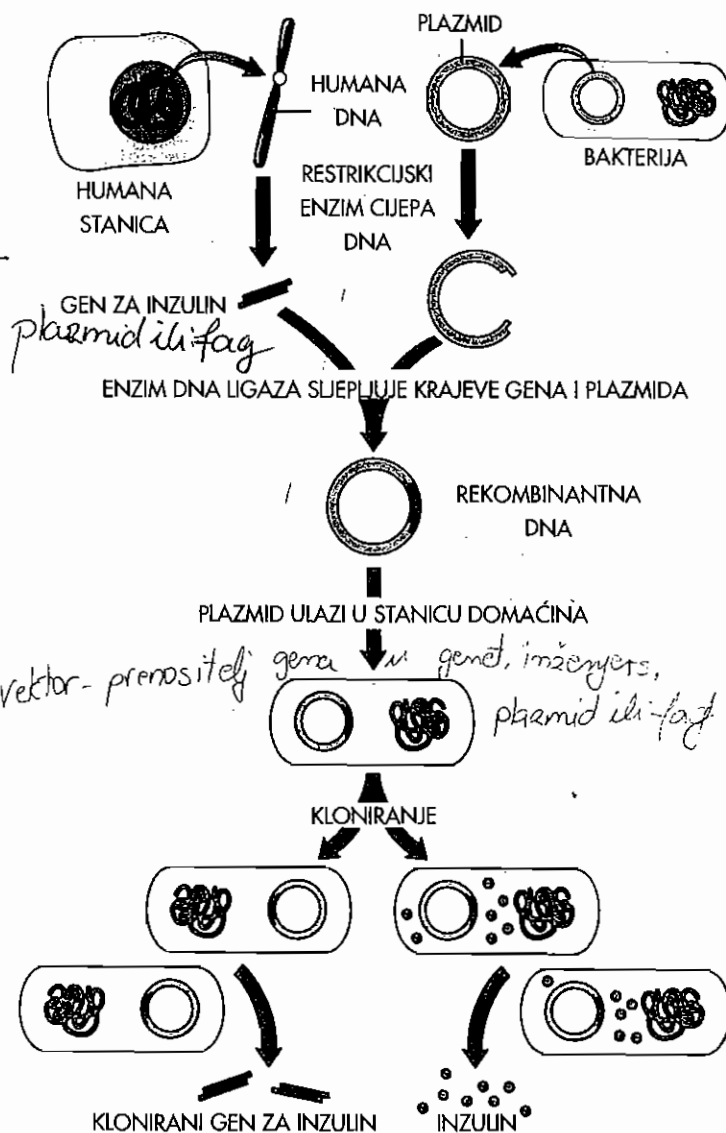 PLAZMID
HUMANA
DNA
BAKTERIJA
HUMANA
STANICA
RESTRIKCIJSKI
ENZIM CIJEPA
DNA
GEN ZA INZULIN
plazmid ili fag
ENZIM DNA LIGAZA SLJEPLJUJE KRAJEVE GENA I PLAZMIDA
REKOMBINANTNA
DNA
PLAZMID ULAZI U STANICU DOMAĆINA
vektor - prenositelj gena u genet. inženjers,
plazmid ili fag
KLONIRANJE
KLONIRANI GEN ZA INZULIN
INZULIN